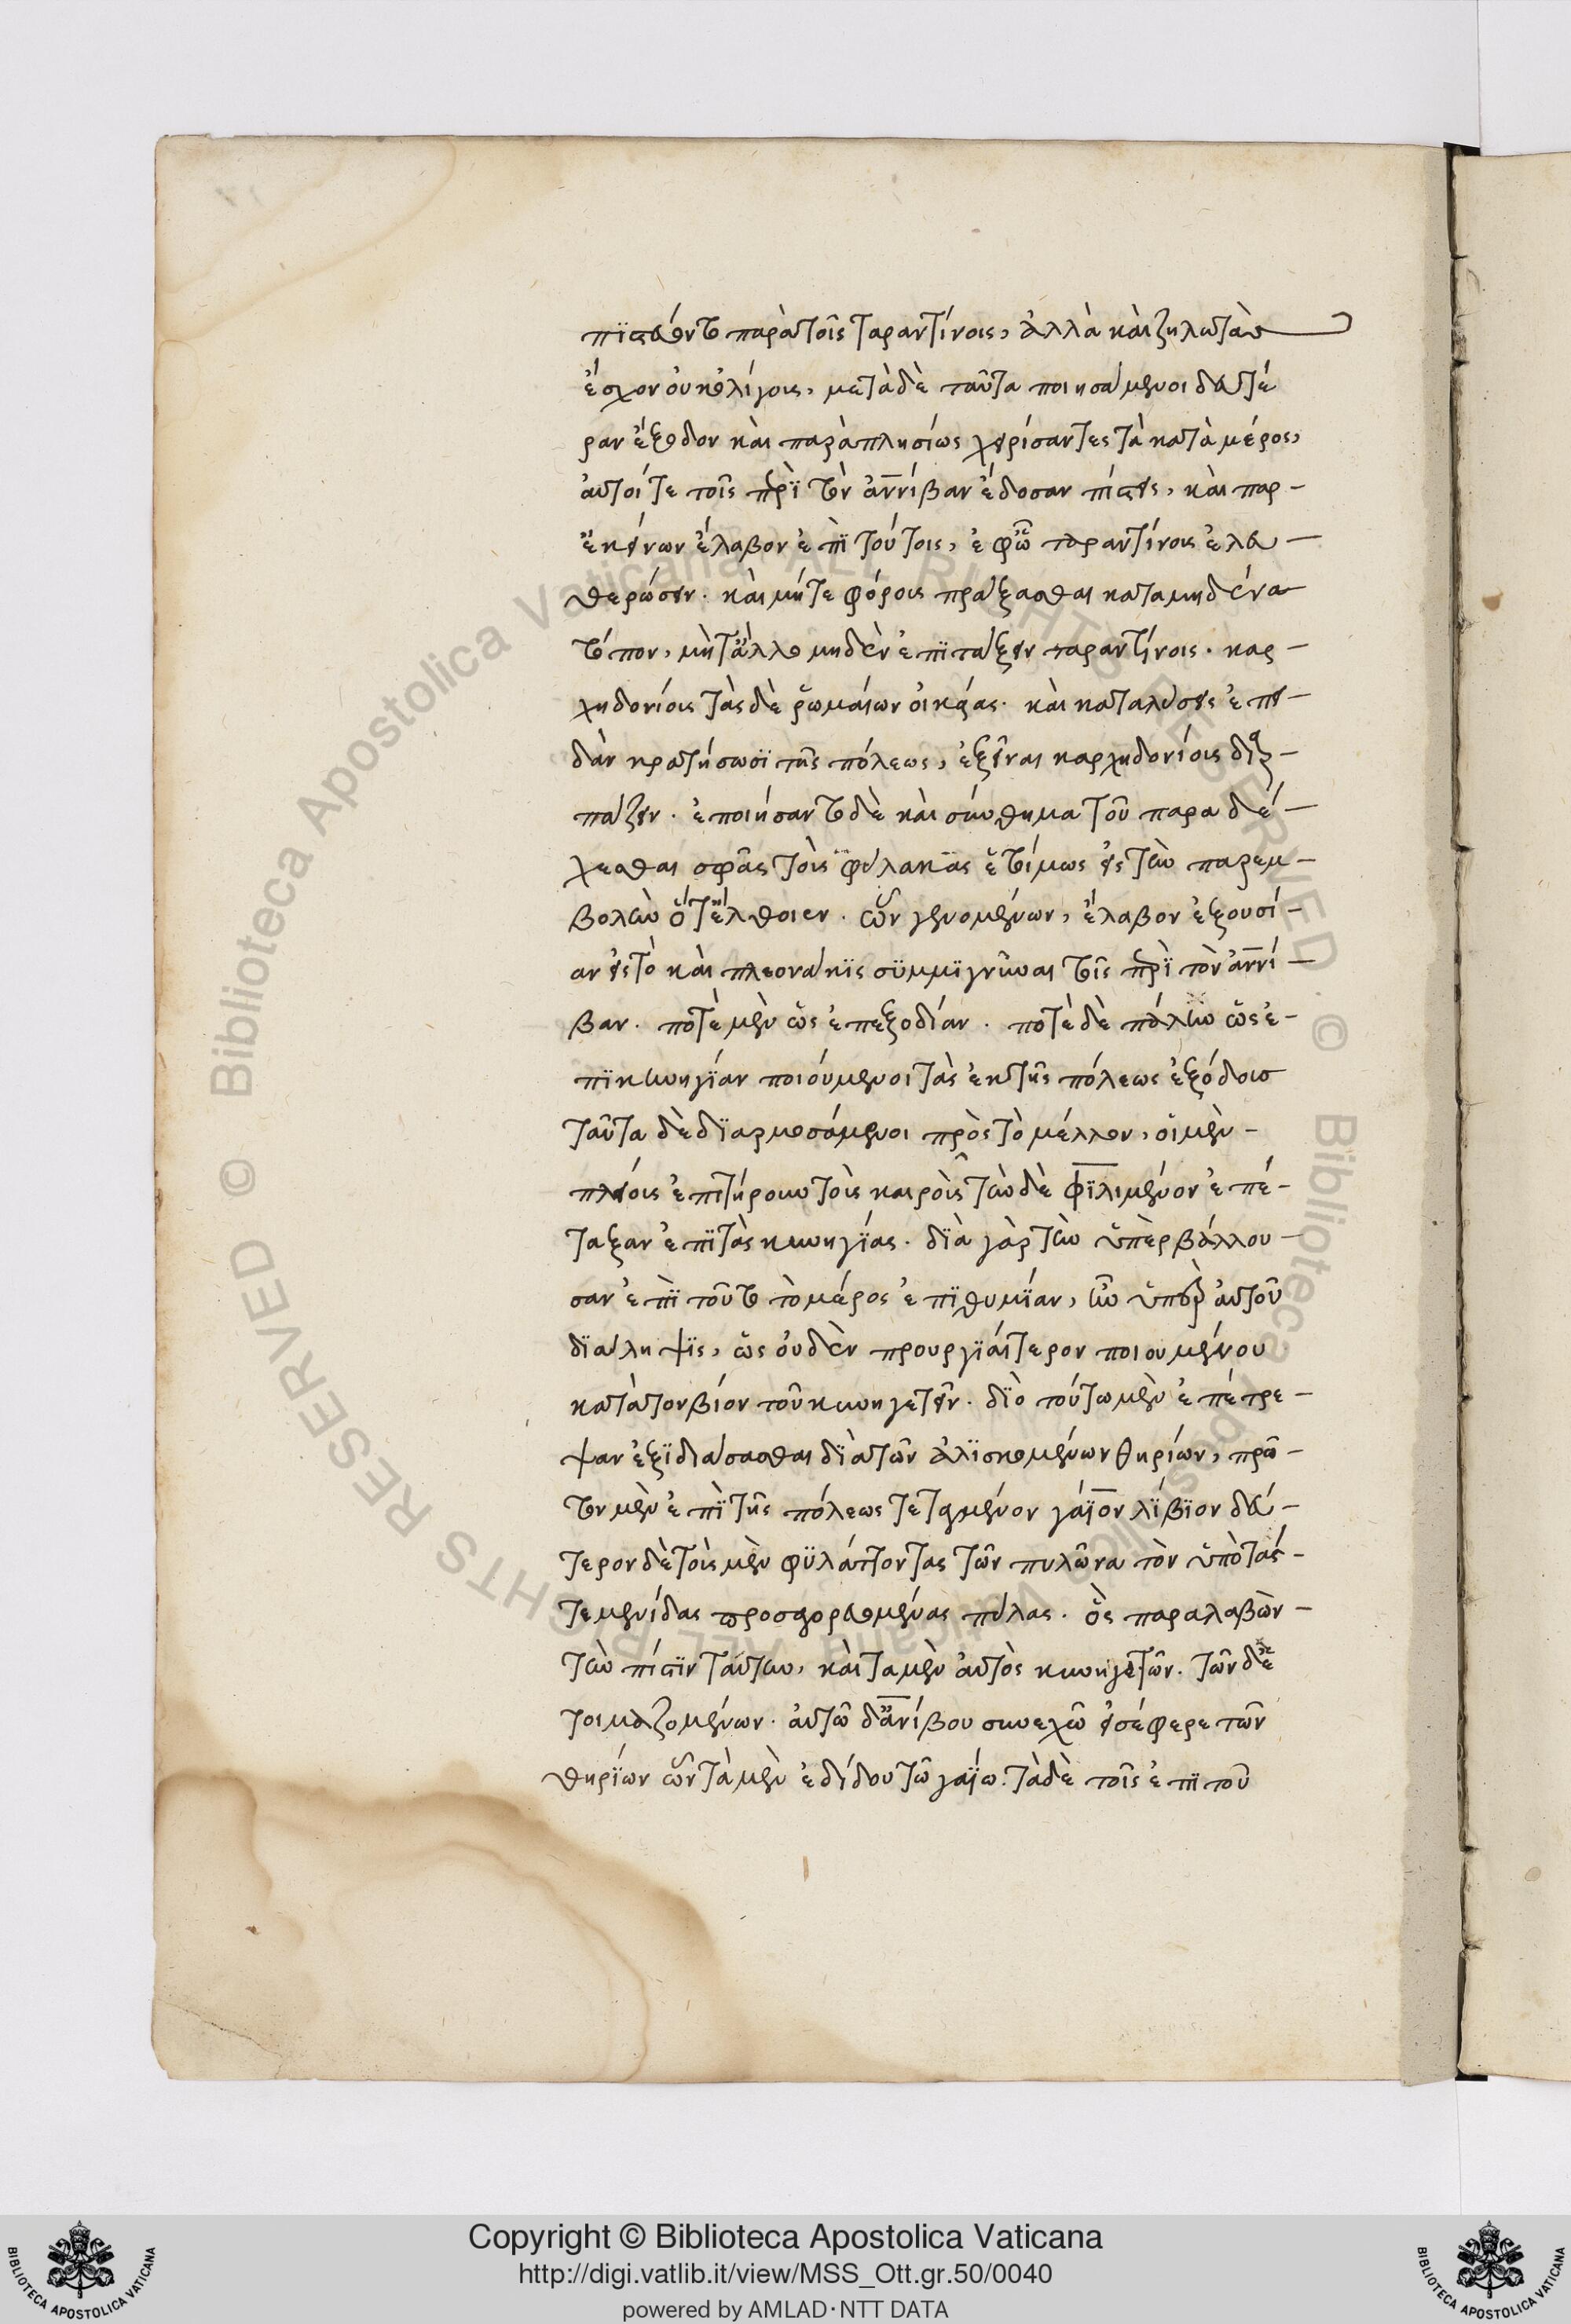 πϊστεύοντο παρὰ τοῖς ταραντίνοις, ἀλλὰ καὶ ζηλωτὰσ
ἔσχον οὐκ ὀλίγους, μετὰ δὲ ταῦτα ποιησάμενοι δευτέ
ραν ἔξοδον καὶ παραπλησίως χειρίσαντες τὰ κατὰ μέρος,
αὐτοί τε τοῖς περὶ τὸν ἀννίβαν ἔδοσαν πίστεις, καὶ παρ-
ἐκείνων ἔλαβον ἐπὶ τούτοις, ἐφ ὧ ταραντίνους ἐλευ-
θερώσειν. καὶ μήτε φόρους πράξασθαι κατα μηδένα
τόπον, μήτ ἄλλο μηδὲν ἐπϊτάξειν ταραντίνοις. καρ-
χηδονίους τὰς δὲ ῥωμαίων οἰκίας. καὶ καταλύσεις ἐπει-
δὰν κρατήσωσϊ τῆς πόλεως, ἐξεῖναι καρχηδονίοις διαρ-
πάζειν. ἐποιήσαντο δὲ καὶ σύνθημα τοῦ παραδέ-
χεσθαι σφᾶς τοὺς φύλακας ἑτοίμως εἰς τὴν παρεμ-
βολὴν ὅτ ἔλθοιεν. ὧν γενομένων, ἔλαβον ἐξουσί-
αν εἰς τὸ καὶ πλεονάκϊς σϋμμϊγνῦναι τοῖς περὶ τὸν ἀννί-
βαν. ποτὲ μὲν ὡς ἐπεξοδίαν. ποτὲ δὲ πάλιν ὡς ἐ-
πϊκυνηγϊαν ποιούμενοι τὰς ἐκ τῆς πόλεως ἐξόδουσ
ταῦτα δὲ δϊαρμοσάμενοι πρὸς τὸ μέλλον, οἱ μὲν-
πλείους ἐπιτήρουν τοὺς καιροὺς τὸν δὲ φϊλιμένον ἐπέ-
ταξαν ἐπϊ τὰς κυνηγίας. δϊὰ γὰρ τὴν ὑπὲρ βάλλου-
σαν ἐπϊ τοῦτο τὸ μέρος ἐπϊθυμϊαν, ἦν ὑπὲρ αὐτοῦ
δϊάληψϊς, ὡς οὐδὲν προυργϊαίτερον ποιουμένου
κατὰ τον βίον τοῦ κυνηγετεῖν. δϊὸ τούτω μὲν ἐπέτρε-
ψαν ἐξϊδιάσασθαι δϊὰ τῶν ἁλϊσκομένων θηρίων, πρῶ-
τον μὲν ἐπὶ τῆς πόλεως τεταγμένον γάϊον λϊβϊον δεύ-
τερον δὲ τοὺς μὲν φϋλάττοντας τῶν πυλῶνα τὸν ὑπὸ τάς-
τεμενίδας προσαγορευομένας πύλας. ὃς παραλαβὼν-
τὴν πίστϊν ταύτην, καὶ τα μὲν αὐτὸς κυνηγετῶν. τῶν δὲ ἑ
τοιμαζομένων. αὐτῶ δι ἀννίβου συνεχῶ εἰσέφερε τῶν
θηρίων ὧν τὰ μὲν ἐδίδου τῶ γαίω. τὰ δὲ τοῖς ἐπϊ τοῦ
Copyright © Biblioteca Apostolica Vaticana
http://digi.vatlib.it/view/MSS_Ott.gr.50/0040
powered by AMLAD·NTT DATA